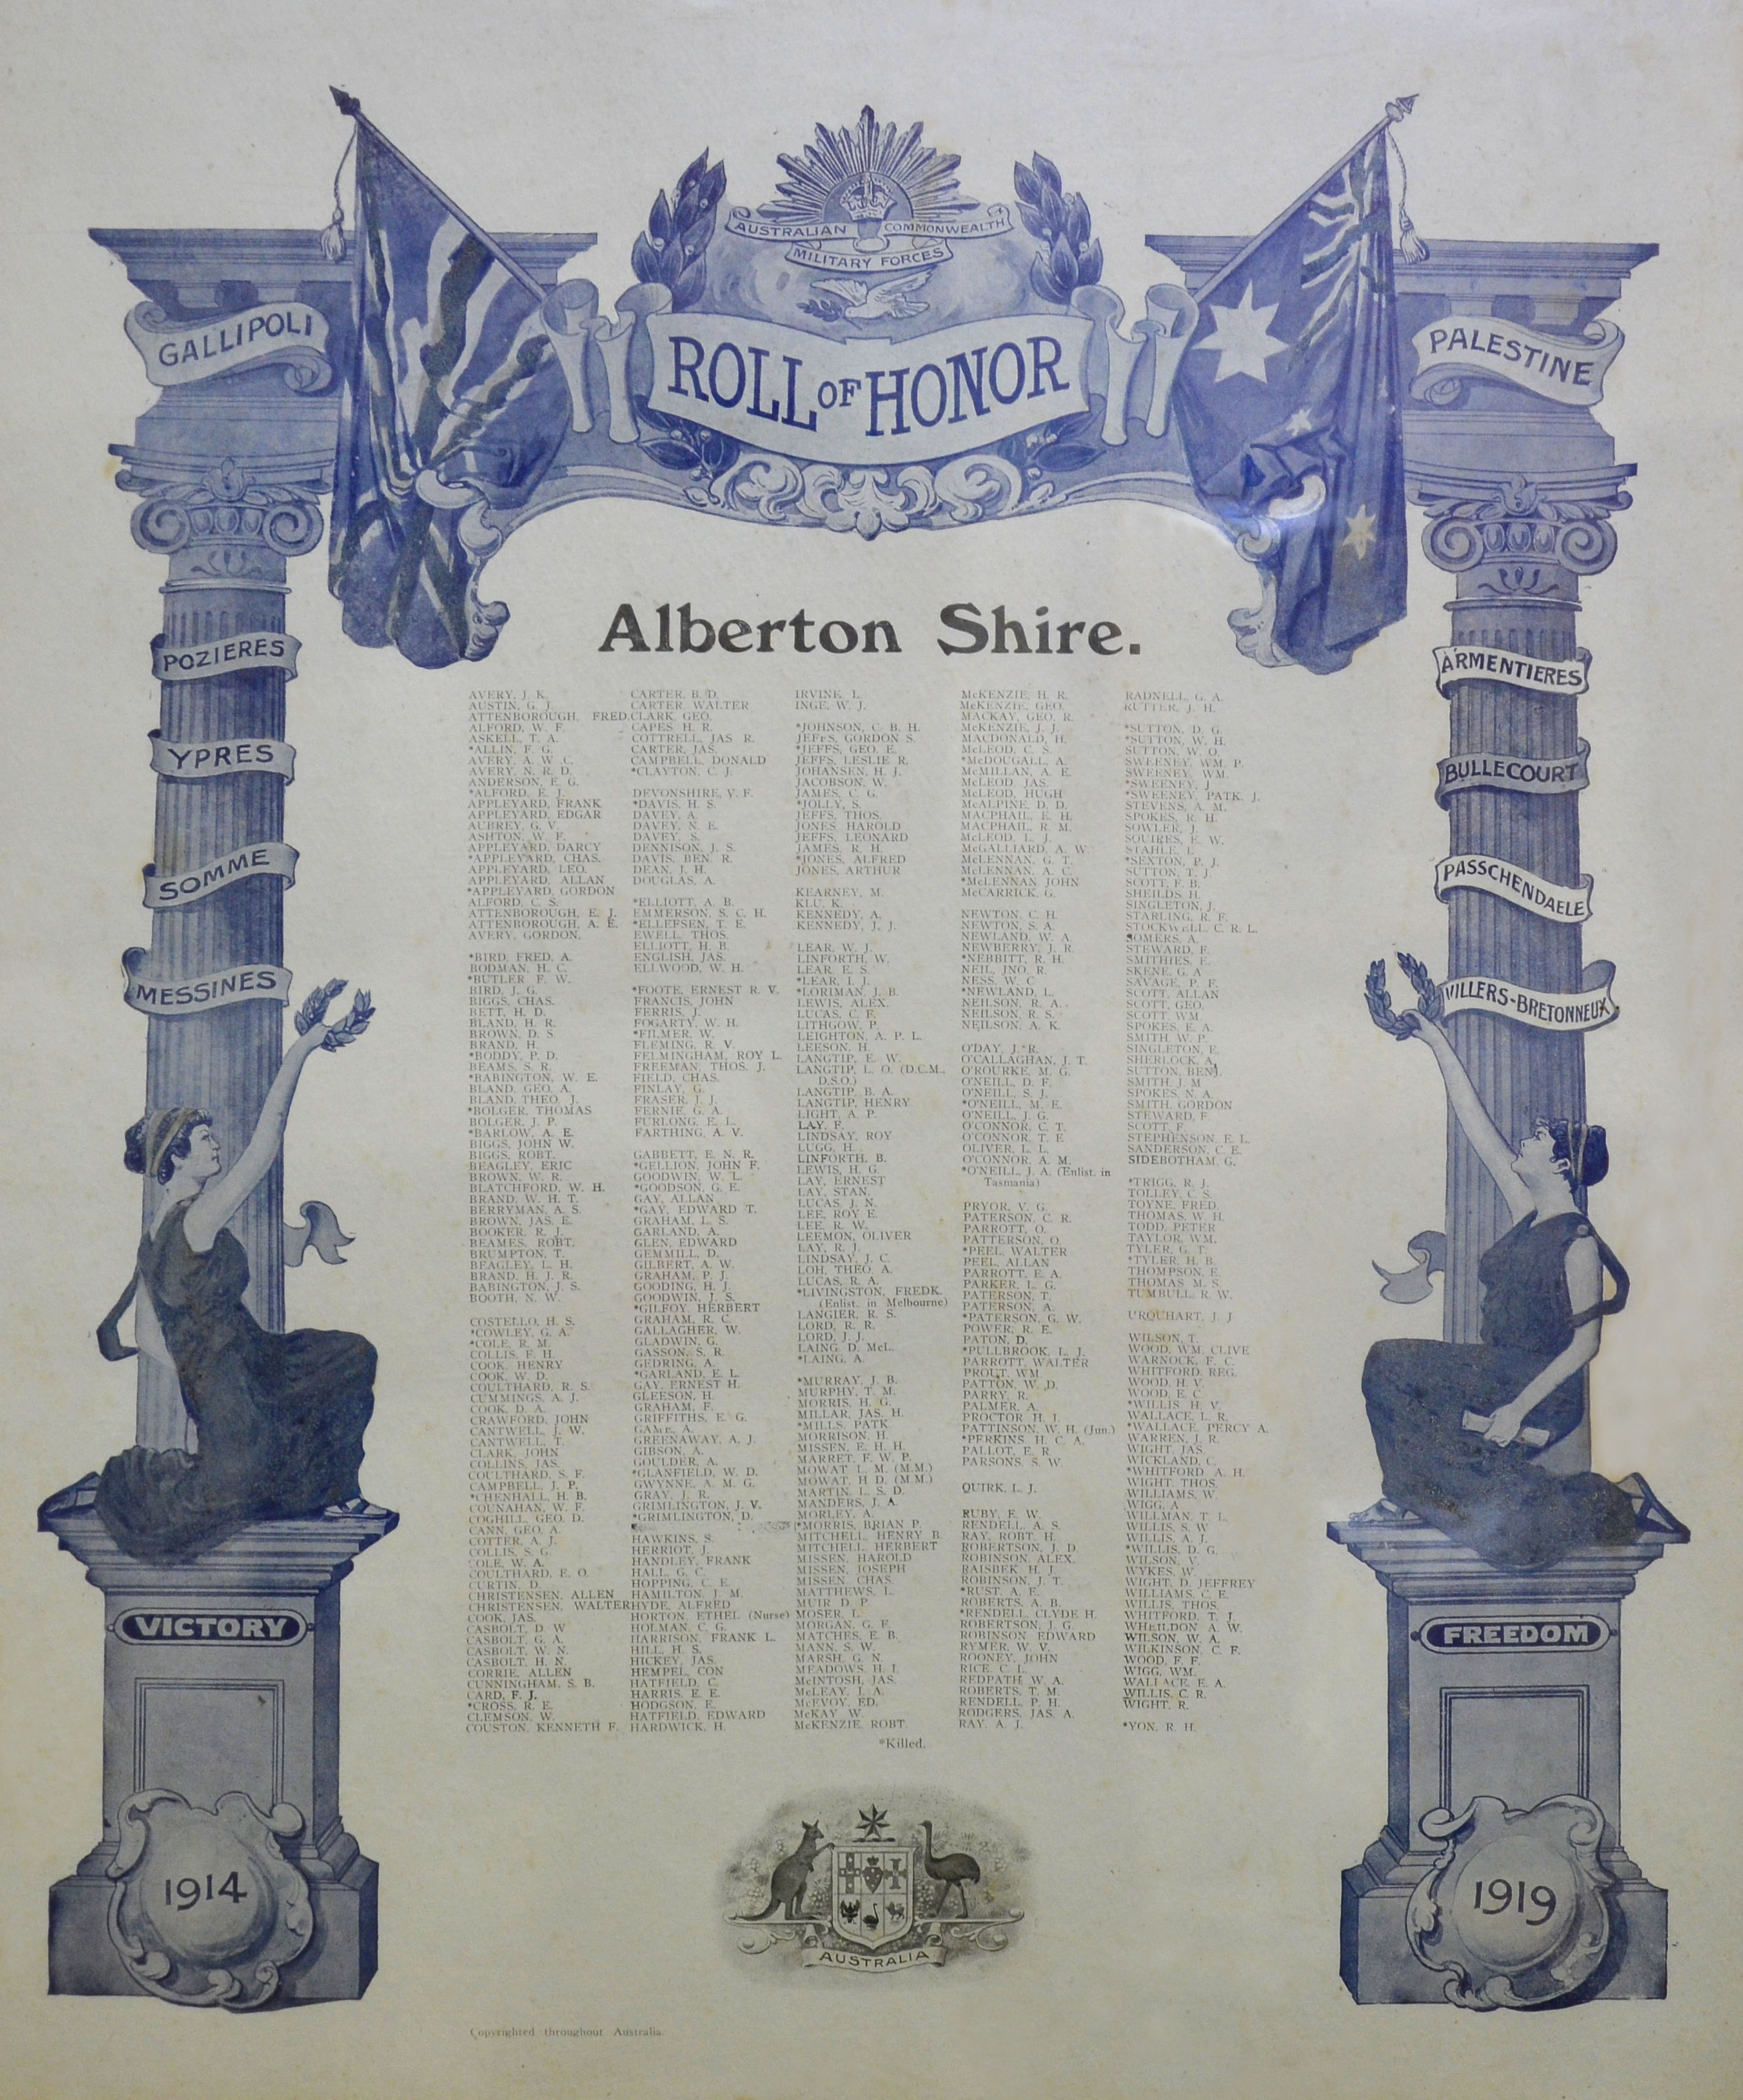 AUSTRALIAN COMMONWEALTH
MILITARY FORCES
ROLL OF HONOR
GALLIPOLI
PALESTINE
POZIERES
YPRES
SOMME
MESSINES
ARMENTIERES
BULLECOURT
PASSCHENDAELE
VILLERS-BRETONNEUX
Alberton Shire.
AVERY, J. K.
AUSTIN, G. J.
ATTENBOROUGH, FRED.
ALFORD, W. F.
ASKELL, T. A.
*ALLIN, F. G.
AVERY, A. W. C.
AVERY, N. R. D.
ANDERSON, E. G.
*ALFORD, E. J.
APPLEYARD, FRANK
APPLEYARD, EDGAR
AUBREY, G. V.
ASHTON, W. F.
APPLEYARD, DARCY
*APPLEYARD, CHAS.
APPLEYARD, LEO.
APPLEYARD, ALLAN
*APPLEYARD, GORDON
ALFORD, C. S.
ATTENBOROUGH, E. J.
ATTENBOROUGH, A. E.
AVERY, GORDON.
*BIRD, FRED. A.
BODMAN, H. C.
*BUTLER, F. W.
BIRD, J. G.
BIGGS, CHAS.
BETT, H. D.
BLAND, H. R.
BROWN, D. S.
BRAND, H.
*BODDY, P. D.
BEAMS, S. R.
*BABINGTON, W. E.
BLAND, GEO. A.
BLAND, THEO. J.
*BOLGER, THOMAS
BOLGER, J. P.
*BARLOW, A. E.
BIGGS, JOHN W.
BIGGS, ROBT.
BEAGLEY, ERIC
BROWN, W. R.
BLATCHFORD, W. H.
BRAND, W. H. T.
BERRYMAN, A. S.
BROWN, JAS. E.
BOOKER, R. J.
BEAMES, ROBT.
BRUMPTON, T.
BEAGLEY, L. H.
BRAND, H. J. R.
BABINGTON, J. S.
BOOTH, N. W.
COSTELLO, H. S.
*COWLEY, G. A.
*COLE, R. M.
COLLIS, F. H.
COOK, HENRY
COOK, W. D.
COULTHARD, R. S.
CUMMINGS, A. J.
COOK, D. A.
CRAWFORD, JOHN
CANTWELL, J. W.
CANTWELL, T.
CLARK, JOHN
COLLINS, JAS.
COULTHARD, S. F.
CAMPBELL, J. P.
*CHENHALL, H. B.
COUNAHAN, W. F.
COGHILL, GEO. D.
CANN, GEO. A.
COTTER, A. J.
COLLIS, S. G.
COLE, W. A.
COULTHARD, E. O.
CURTIN, D.
CHRISTENSEN, ALLEN
CHRISTENSEN, WALTER
COOK, JAS.
CASBOLT, D. W
CASBOLT, G. A.
CASBOLT, W. N.
CASBOLT, H. N.
CORRIE, ALLEN
CUNNINGHAM, S. B.
CARD, F. J.
*CROSS, R. E.
CLEMSON, W.
COUSTON, KENNETH F.
CARTER, B. D.
CARTER, WALTER
CLARK, GEO.
CAPES, H. R.
COTTRELL, JAS R.
CARTER, JAS.
CAMPBELL, DONALD
*CLAYTON, C. J.
DEVONSHIRE, V. F.
*DAVIS, H. S.
DAVEY, A.
DAVEY, N. E.
DAVEY, S.
DENNISON, J. S.
DAVIS, BEN. R.
DEAN, J. H.
DOUGLAS, A.
*ELLIOTT, A. B.
EMMERSON, S. C. H.
*ELLEFSEN, T. E.
EWELL, THOS.
ELLIOTT, H. B.
ENGLISH, JAS.
ELLWOOD, W. H.
*FOOTE, ERNEST R. V.
FRANCIS, JOHN
FERRIS, J.
FOGARTY, W. H.
*FILMER, W.
FLEMING, R. V.
FELMINGHAM, ROY L.
FREEMAN, THOS. J.
FIELD, CHAS.
FINLAY, G.
FRASER, J. J.
FERNIE, G. A.
FURLONG, E. L.
FARTHING, A. V.
GABBETT, E. N. R.
*GELLION, JOHN F.
GOODWIN, W. L.
*GOODSON, G. E.
GAY, ALLAN
*GAY, EDWARD T.
GRAHAM, L. S.
GARLAND, A.
GLEN, EDWARD
GEMMILL, D.
GILBERT, A. W.
GRAHAM, P. J.
GOODING, H. J.
GOODWIN, J. S.
*GILFOY, HERBERT
GRAHAM, R. C.
GALLAGHER, W.
GLADWIN, G.
GASSON, S. R.
GEDRING, A.
*GARLAND, E. L.
GAY, ERNEST H.
GLEESON, H.
GRAHAM, F.
GRIFFITHS, E. G.
GAME, A.
GREENAWAY, A. J.
GIBSON, A.
GOULDER, A.
*GLANFIELD, W. D.
GWYNNE, A. M. G.
GRAY, J. R.
GRIMLINGTON, J. V.
*GRIMLINGTON, D.
HAWKINS, S.
HERRIOT, J.
HANDLEY, FRANK
HALL, G. C.
HOPPING, C. E.
HAMILTON, J. M.
HYDE, ALFRED
HORTON, ETHEL (Nurse)
HOLMAN, C. G.
HARRISON, FRANK L.
HILL, H. S.
HICKEY, JAS.
HEMPEL, CON
HATFIELD, C.
HARRIS, E. E.
HODGSON, E.
HATFIELD, EDWARD
HARDWICK, H.
IRVINE, L.
INGE, W. J.
*JOHNSON, C. B. H.
JEFFS, GORDON S.
*JEFFS, GEO. E.
JEFFS, LESLIE R.
JOHANSEN, H. J.
JACOBSON, W.
JAMES, C. G.
*JOLLY, S.
JEFFS, THOS.
JONES HAROLD
JEFFS, LEONARD
JAMES, R. H.
*JONES, ALFRED
JONES, ARTHUR
KEARNEY, M.
KLU, K.
KENNEDY, A.
KENNEDY, J. J.
LEAR, W. J.
LINFORTH, W.
LEAR, E. S.
*LEAR, I. J.
*LORIMAN, J. B.
LEWIS, ALEX.
LUCAS, C. F.
LITHGOW, P.
LEIGHTON, A. P. L.
LEESON, H.
LANGTIP, E. W.
LANGTIP, L. O. (D.C.M.,
D.S.O.)
LANGTIP, B. A.
LANGTIP, HENRY
LIGHT, A. P.
LAY, F.
LINDSAY, ROY
LUGG, H.
LINFORTH, B.
LEWIS, H. G.
LAY, ERNEST
LAY, STAN.
LUCAS, J. N.
LEE, ROY E.
LEE, R. W.
LEEMON, OLIVER
LAY, R. J.
LINDSAY, J. C.
LOH, THEO. A.
LUCAS, R. A.
*LIVINGSTON, FREDK.
(Enlist. in Melbourne)
LANGIER, R. S.
LORD, R. R.
LORD, J. J.
LAING, D. McL.
*LAING, A.
*MURRAY, J. B.
MURPHY, T. M.
MORRIS, H. G.
MILLAR, JAS. H.
*MILLS, PATK.
MORRISON, H.
MISSEN, E. H. H.
MARRET, F. W. P.
MOWAT, L. M. (M.M.)
MOWAT, H. D. (M.M.)
MARTIN, L. S. D.
MANDERS, J. A.
MORLEY, A.
*MORRIS, BRIAN P.
MITCHELL, HENRY B.
MITCHELL, HERBERT
MISSEN, HAROLD
MISSEN, JOSEPH
MISSEN, CHAS.
MATTHEWS, L.
MUIR D. P.
MOSER, L.
MORGAN, G. F.
MATCHES, E. B.
MANN, S. W.
MARSH, G. N.
MEADOWS, H. J.
McINTOSH, JAS.
McLEAY, J. A.
McEVOY, ED.
McKAY W.
McKENZIE, ROBT.
McKENZIE, H. R.
McKENZIE, GEO.
MACKAY, GEO. R.
McKENZIE, J. J.
MACDONALD, H.
McLEOD, C. S.
*McDOUGALL, A.
McMILLAN, A. E.
McLEOD, JAS.
McLEOD, HUGH
McALPINE, D. D.
MACPHAIL, E. H.
MACPHAIL, R. M.
McLEOD, L. J.
McGALLIARD, A. W.
McLENNAN, G. T.
McLENNAN, A. C.
*McLENNAN JOHN
McCARRICK, G.
NEWTON, C. H.
NEWTON, S. A.
NEWLAND, W. A.
NEWBERRY, J. R.
*NEBBITT, R. H.
NEIL, JNO. R.
NESS, W. C.
*NEWLAND, L.
NEILSON, R. A.
NEILSON, R. S.
NEILSON, A. K.
O'DAY, J. R.
O'CALLAGHAN, J. T.
O'ROURKE, M. G.
O'NEILL, D. F.
O'NEILL, S. J.
*O'NEILL, M. E.
O'NEILL, J. G.
O'CONNOR, C. T.
O'CONNOR, T. E
OLIVER, L. L.
O'CONNOR, A. M.
*O'NEILL, J. A. (Enlist. in
Tasmania)
PRYOR, V. G.
PATERSON, C. R.
PARROTT, O.
PATTERSON, O.
*PEEL, WALTER
PEEL, ALLAN
PARROTT, E. A.
PARKER, L. G.
PATERSON, T.
PATERSON, A.
*PATERSON, G. W.
POWER, R. E.
PATON, D.
*PULLBROOK, L. J.
PARROTT, WALTER
PROUT, WM.
PATTON, W. D.
PARRY, R.
PALMER, A.
PROCTOR H. J.
PATTINSON, W. H. (Jun.)
*PERKINS, H. C. A.
PALLOT, E. R.
PARSONS, S. W.
QUIRK, L. J.
RUBY, E. W.
RENDELL, A. S.
RAY, ROBT. H.
ROBERTSON, J. D.
ROBINSON, ALEX.
RAISBEK H. J.
ROBINSON, J. T.
*RUST, A. E.
ROBERTS, A. B.
*RENDELL, CLYDE H.
ROBERTSON, J. G.
ROBINSON, EDWARD
RYMER, W. V.
ROONEY, JOHN
RICE, C. L.
REDPATH, W. A.
ROBERTS, T. M.
RENDELL, P. H.
RODGERS, JAS. A.
RAY, A. J.
RADNELL, G. A.
RUTTER, J. H.
*SUTTON, D. G.
*SUTTON, W. H.
SUTTON, W. O.
SWEENEY, WM. P.
SWEENEY, WM.
*SWEENEY, J
*SWEENEY, PATK. J.
STEVENS, A. M.
SPOKES, R. H.
SOWLER, J.
SQUIRES, E. W.
STAHLE, L.
*SEXTON, P. J.
SUTTON, T. J.
SCOTT, F. B.
SHEILDS H.
SINGLETON, J.
STARLING, R. F.
STOCKWELL, C. R. L.
*SOMERS, A.
STEWARD, F.
SMITHIES, E.
SKENE, G. A
SAVAGE, P. F.
SCOTT, ALLAN
SCOTT, GEO.
SCOTT, WM.
SPOKES, E. A.
SMITH, W. P.
SINGLETON, E.
SHERLOCK, A.
SUTTON, BENJ.
SMITH, J. M
SPOKES, N. A.
SMITH, GORDON
STEWARD, F.
SCOTT, F.
STEPHENSON, E. L.
SANDERSON, C. E.
SIDEBOTHAM, G.
*TRIGG, R. J.
TOLLEY, C. S.
TOYNE, FRED.
THOMAS, W. H.
TODD, PETER
TAYLOR, WM.
TYLER, G. T.
*TYLER, H. B.
THOMPSON, E.
THOMAS, M. S.
TUMBULL, R. W.
URQUHART, J. J
WILSON, T.
WOOD, WM. CLIVE
WARNOCK, F. C.
WHITFORD, REG.
WOOD, H. V.
WOOD, E. C.
*WILLIS H. V.
WALLACE, L. R.
*WALLACE, PERCY A.
WARREN, J. R.
WIGHT, JAS.
WICKLAND, C.
*WHITFORD, A. H.
WIGHT, THOS.
WILLIAMS, W.
WIGG, A
WILLMAN, T. L.
WILLIS, S. W
WILLIS, A. J.
*WILLIS, D. G.
WILSON, V.
WYKES, W.
WIGHT, D. JEFFREY
WILLIAMS, C. E.
WILLIS, THOS.
WHITFORD, T. J.
WHEILDON A. W.
WILSON, W. A.
WILKINSON, C. F.
WOOD, F. F.
WIGG, WM.
WALLACE, E. A.
WILLIS, C. R.
WIGHT, R.
*YON, R. H.
*Killed.
VICTORY
FREEDOM
1914
1919
AUSTRALIA
Copyrighted throughout Australia